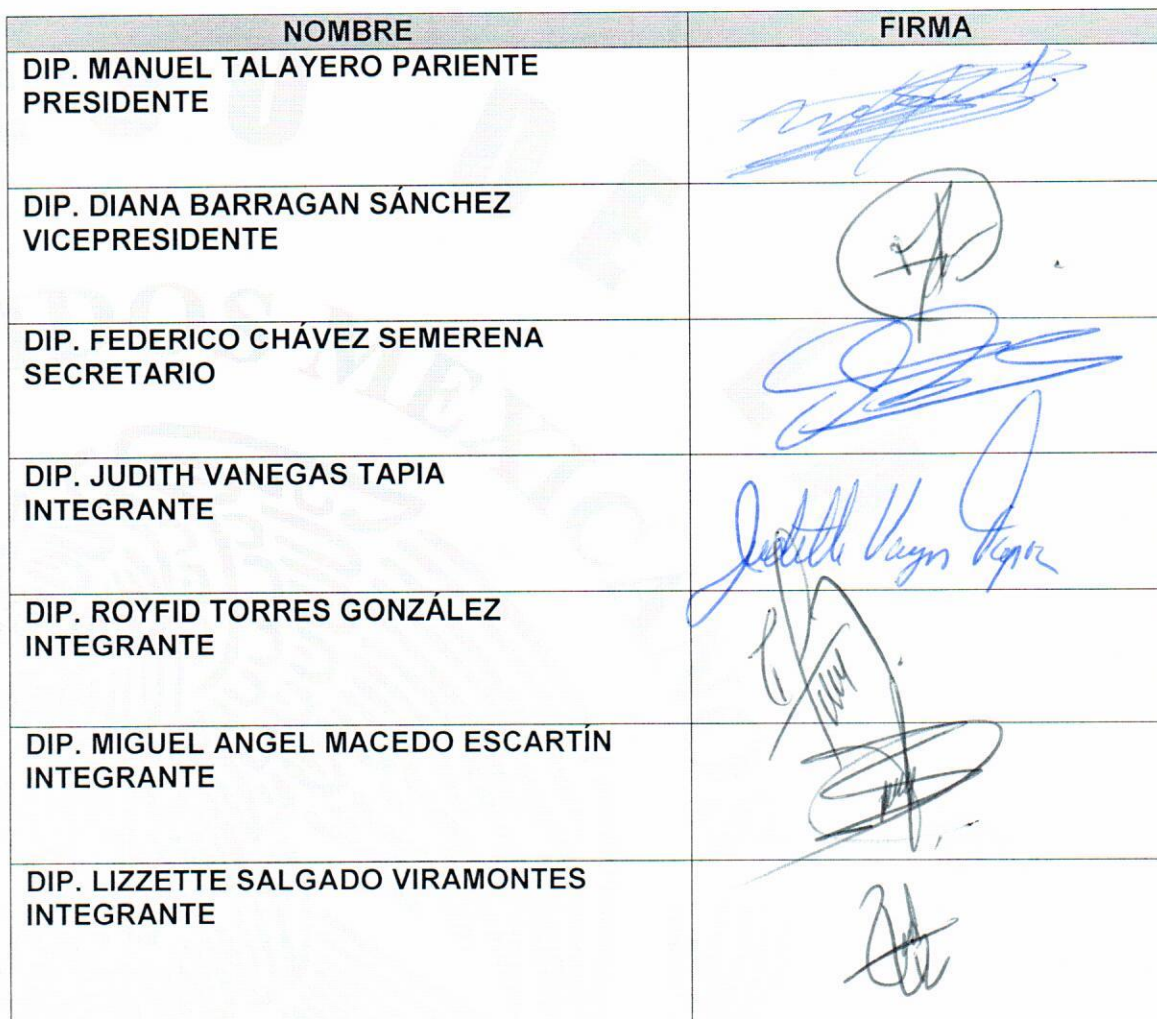 NOMBRE FIRMA
DIP. MANUEL TALAYERO PARIENTE
PRESIDENTE
DIP. DIANA BARRAGAN SÁNCHEZ
VICEPRESIDENTE
DIP. FEDERICO CHÁVEZ SEMERENA
SECRETARIO
DIP. JUDITH VANEGAS TAPIA
INTEGRANTE
Judith Vanegas Tapia
DIP. ROYFID TORRES GONZÁLEZ
INTEGRANTE
DIP. MIGUEL ANGEL MACEDO ESCARTÍN
INTEGRANTE
DIP. LIZZETTE SALGADO VIRAMONTES
INTEGRANTE